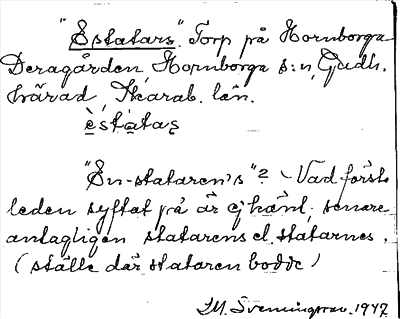 "Estatars". Torp på Hornborga
Deragården, Hornborga s:n, Gudh.
härad, Skarab. län.
èstátaş
"En-stataren's"? - Vad första
leden syftat på är ej känt; senare
antagligen statarens el. statarnes.
(ställe där stataren bodde)
M. Svenningsson. 1947